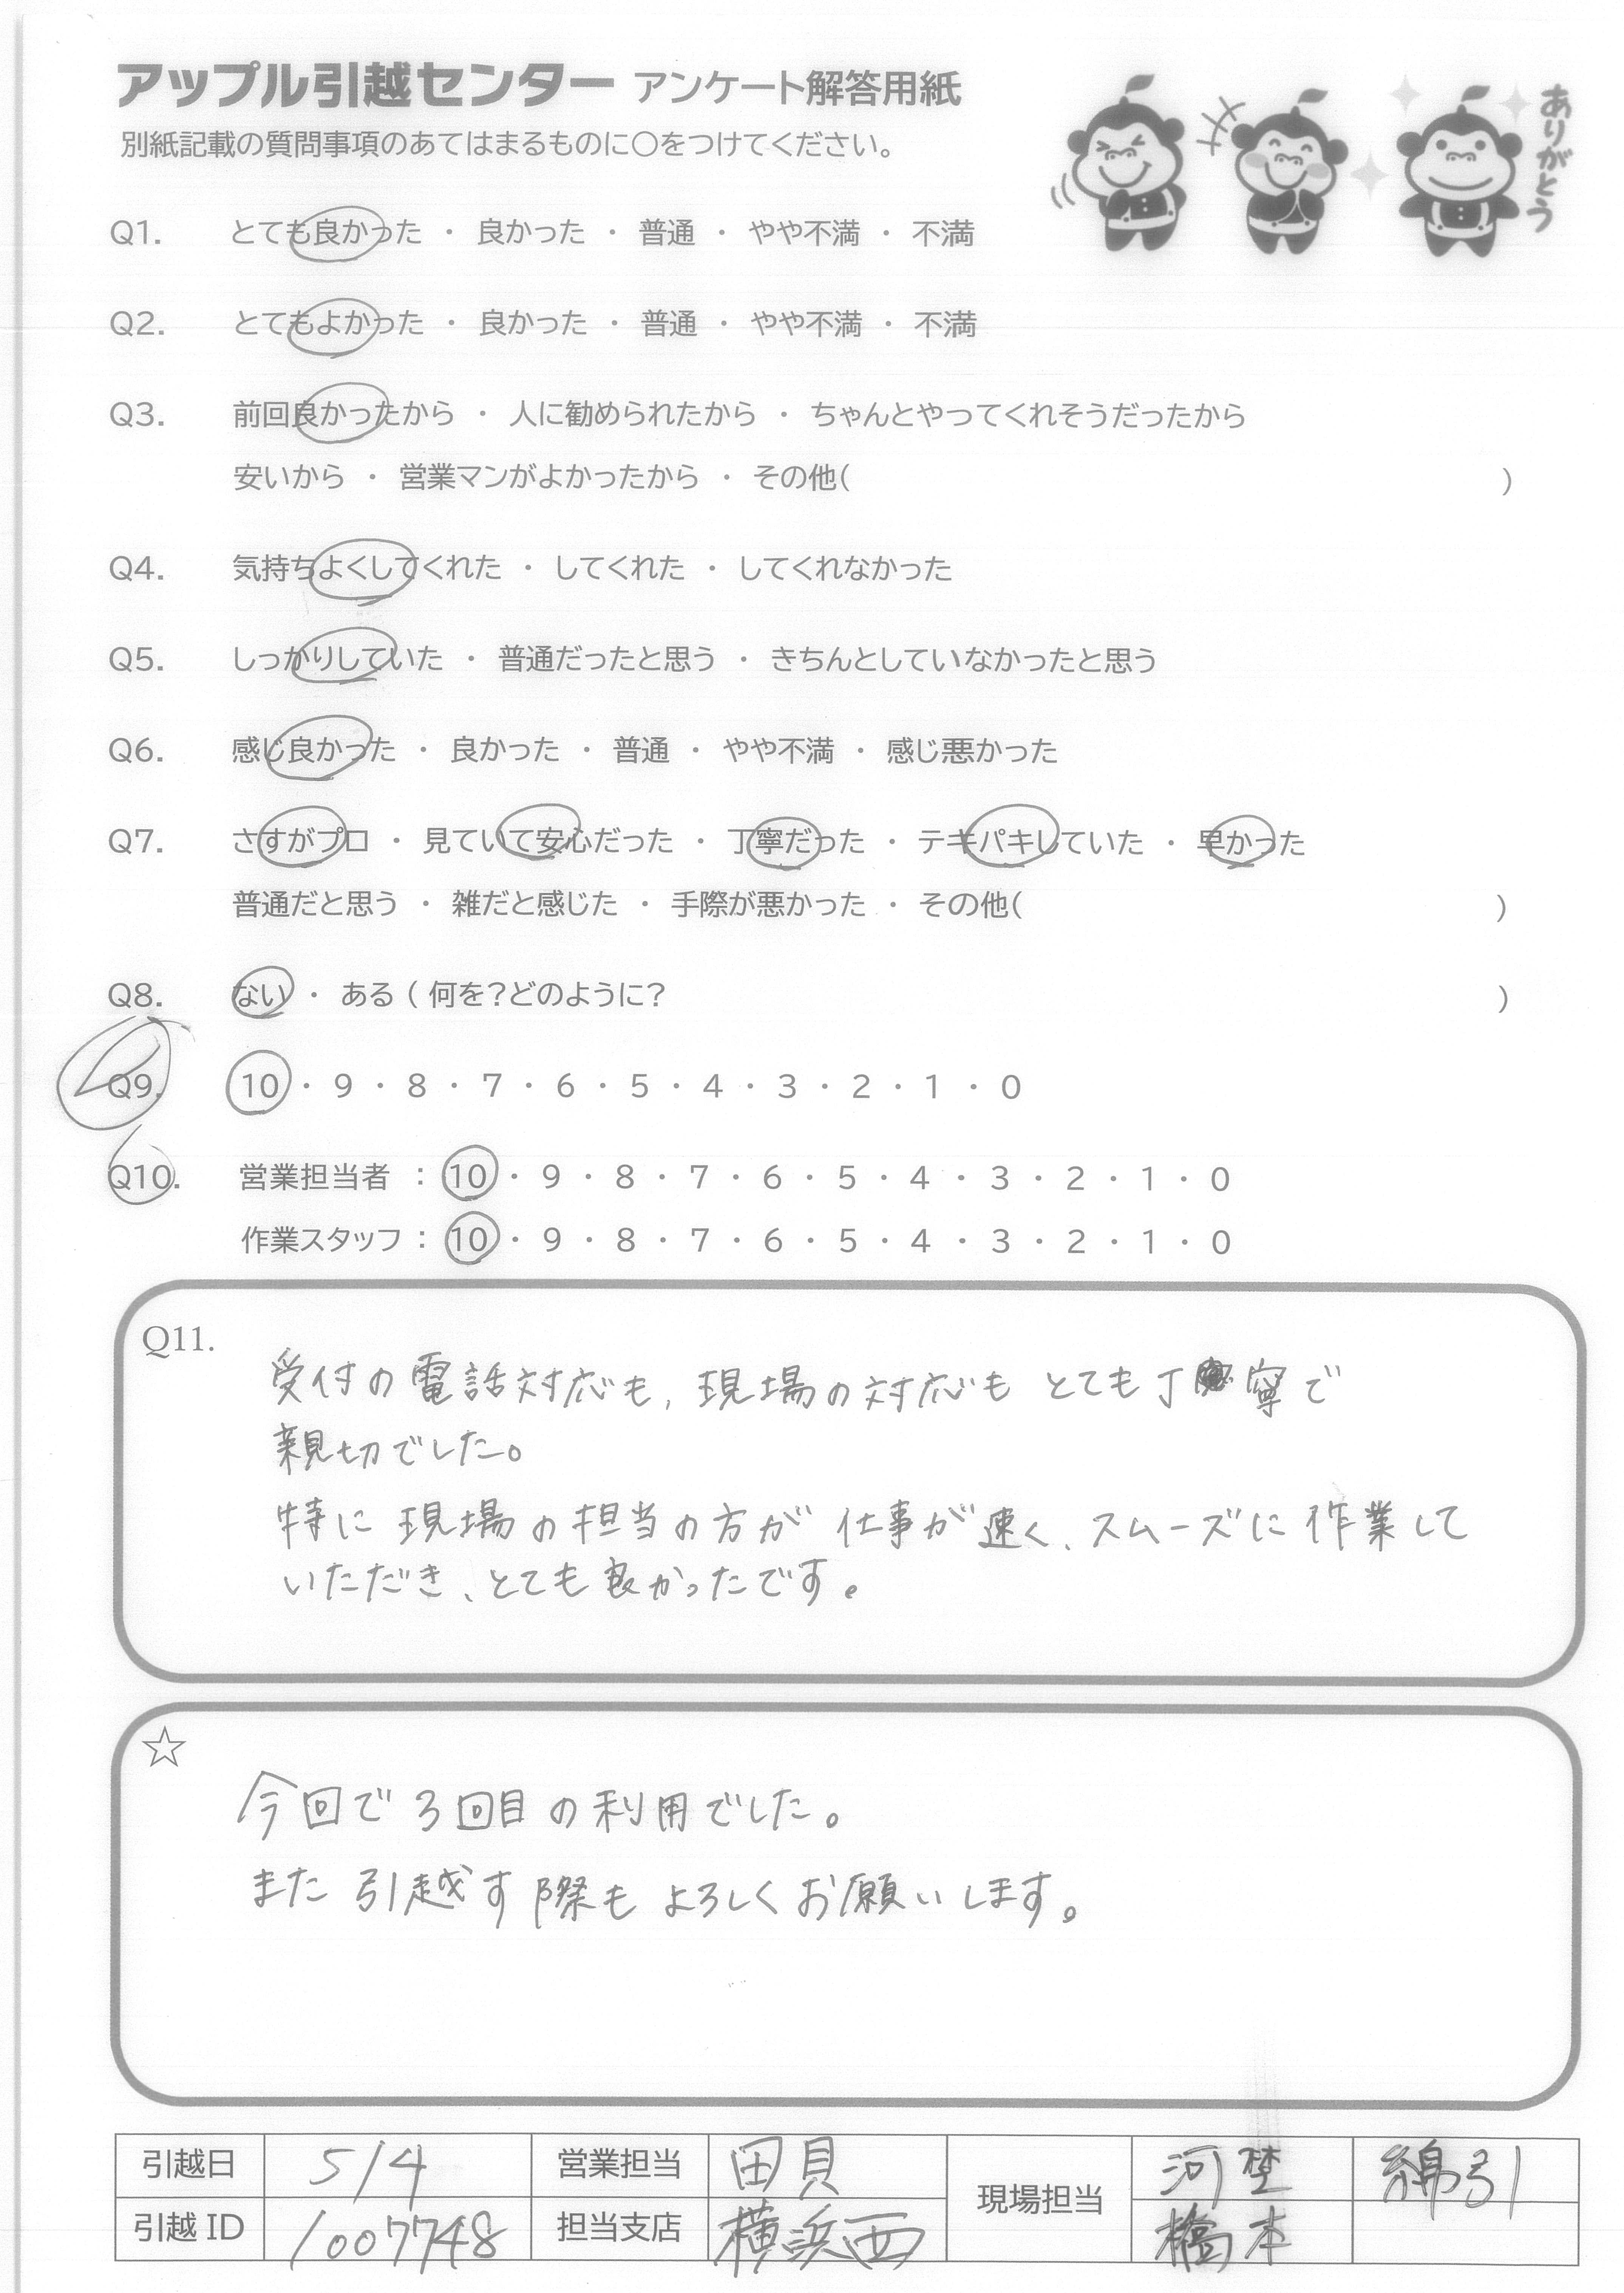 アップル引越センター アンケート解答用紙
別紙記載の質問事項のあてはまるものに○をつけてください。
ありがとう
Q1. とても良かった ・ 良かった ・ 普通 ・ やや不満 ・ 不満
Q2. とてもよかった ・ 良かった ・ 普通 ・ やや不満 ・ 不満
Q3. 前回良かったから ・ 人に勧められたから ・ ちゃんとやってくれそうだったから
安いから ・ 営業マンがよかったから ・ その他( )
Q4. 気持ちよくしてくれた ・ してくれた ・ してくれなかった
Q5. しっかりしていた ・ 普通だったと思う ・ きちんとしていなかったと思う
Q6. 感じ良かった ・ 良かった ・ 普通 ・ やや不満 ・ 感じ悪かった
Q7. さすがプロ ・ 見ていて安心だった ・ 丁寧だった ・ テキパキしていた ・ 早かった
普通だと思う ・ 雑だと感じた ・ 手際が悪かった ・ その他( )
Q8. ない ・ ある ( 何を?どのように? )
Q9. 10 ・ 9 ・ 8 ・ 7 ・ 6 ・ 5 ・ 4 ・ 3 ・ 2 ・ 1 ・ 0
Q10. 営業担当者 : 10 ・ 9 ・ 8 ・ 7 ・ 6 ・ 5 ・ 4 ・ 3 ・ 2 ・ 1 ・ 0
作業スタッフ : 10 ・ 9 ・ 8 ・ 7 ・ 6 ・ 5 ・ 4 ・ 3 ・ 2 ・ 1 ・ 0
Q11.
受付の電話対応も、現場の対応も とても丁寧で
親切でした。
特に 現場の担当の方が 仕事が速く、スムーズに作業して
いただき、とても良かったです。
☆
今回で3回目の利用でした。
また引越す際もよろしくお願いします。
引越日 5/4 営業担当 田貝 現場担当 河埜 綿引
引越 ID 1007748 担当支店 横浜西 橋本